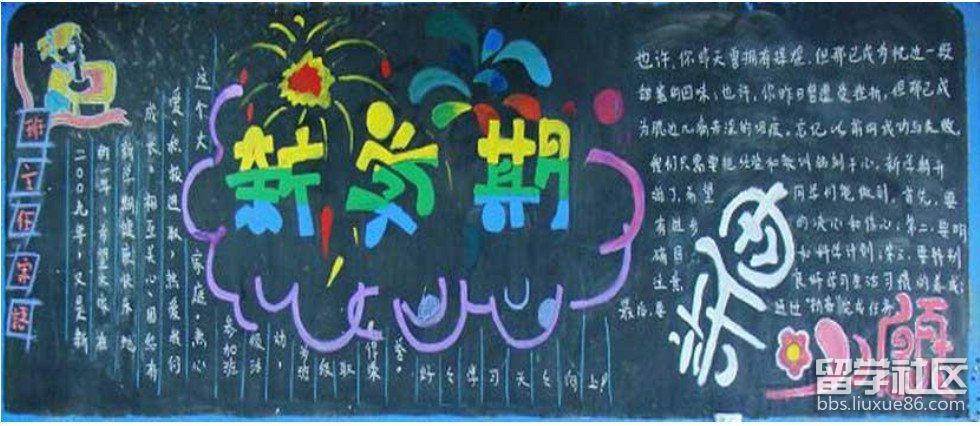 班主任寄语
二00九年，又是新
的一年，希望大家在
新学期健康快乐地
成长，相互关心，
爱，积极进取，热爱我们
这个大家庭，热心
参加班
级活
动，为
班级取
得荣
誉。
好好学习天天向上！
新学期
也许，你昨天曾拥有辉煌，但那已成为枕边一段
甜蜜的回味；也许，你昨日曾遭受挫折，但那已成
为腮边几滴苦涩的。忘记以前的成功与失败，
我们只需要把经验和教训铭刻于心。新学期开
始了，希望同学们能做到：首先，要
有进步的决心和信心；第二，要明
确目和科学计划；第三，要特别
注意良好学习生活习惯的养成；
最后，要通过“勤奋”完成任务
留学社区
bbs.liuxue86.com